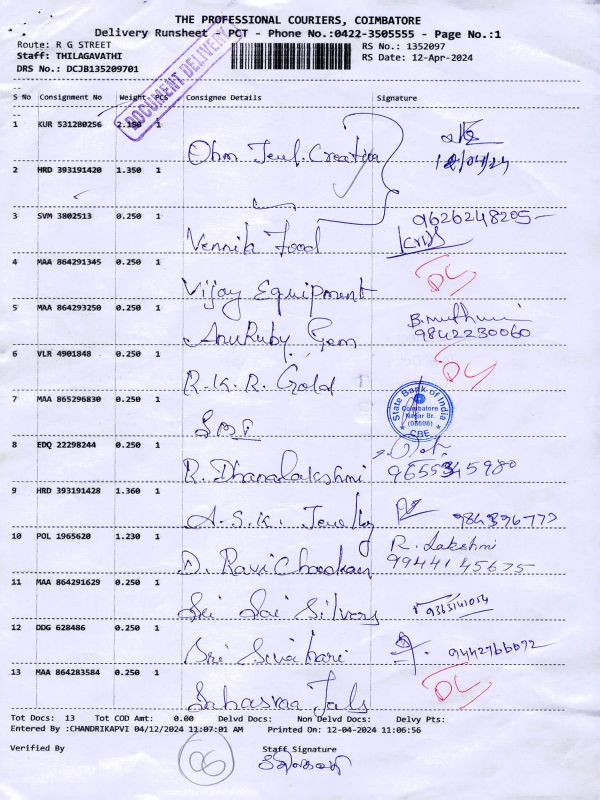 THE PROFESSIONAL COURIERS, COIMBATORE
Delivery Runsheet - PCT - Phone No.:0422-3505555 - Page No.:1
Route: R G STREET
RS No.: 1352097
Staff: THILAGAVATHI
RS Date: 12-Apr-2024
DRS No.: DCJB135209701
DOCUMENT DELIVERY
S No Consignment No Weight- PCS Consignee Details Signature
1 KUR 531280256 2.150 1 Ohm Jewl. Creation 12/04/24
2 HRD 393191420 1.350 1
3 SVM 3802513 0.250 1 Vennila Food 9626248205
4 MAA 864291345 0.250 1 Vijay Equipment DL
5 MAA 864293250 0.250 1 AnuRuby Gem B.Muthu 9842230060
6 VLR 4901848 0.250 1 R.K.R. Gold DL
7 MAA 865296830 0.250 1 State Bank of India Coimbatore Nagar Br. CBE
8 EDQ 22298244 0.250 1 R. Dhanalakshmi
9 HRD 393191428 1.360 1 A.S.K. Jewellery
10 POL 1965620 1.230 1 D. Ravi Chandran R. Lakshmi 9944145675
11 MAA 864291629 0.250 1 Sri Sai Silvers
12 DDG 628486 0.250 1 Sri Sivahari 9442766072
13 MAA 864283584 0.250 1 Sahasraa Jals DL
Tot Docs: 13 Tot COD Amt: 0.00 Delvd Docs: Non Delvd Docs: Delvy Pts:
Entered By :CHANDRIKAPVI 04/12/2024 11:07:01 AM Printed On: 12-04-2024 11:06:56
Verified By Staff Signature
06